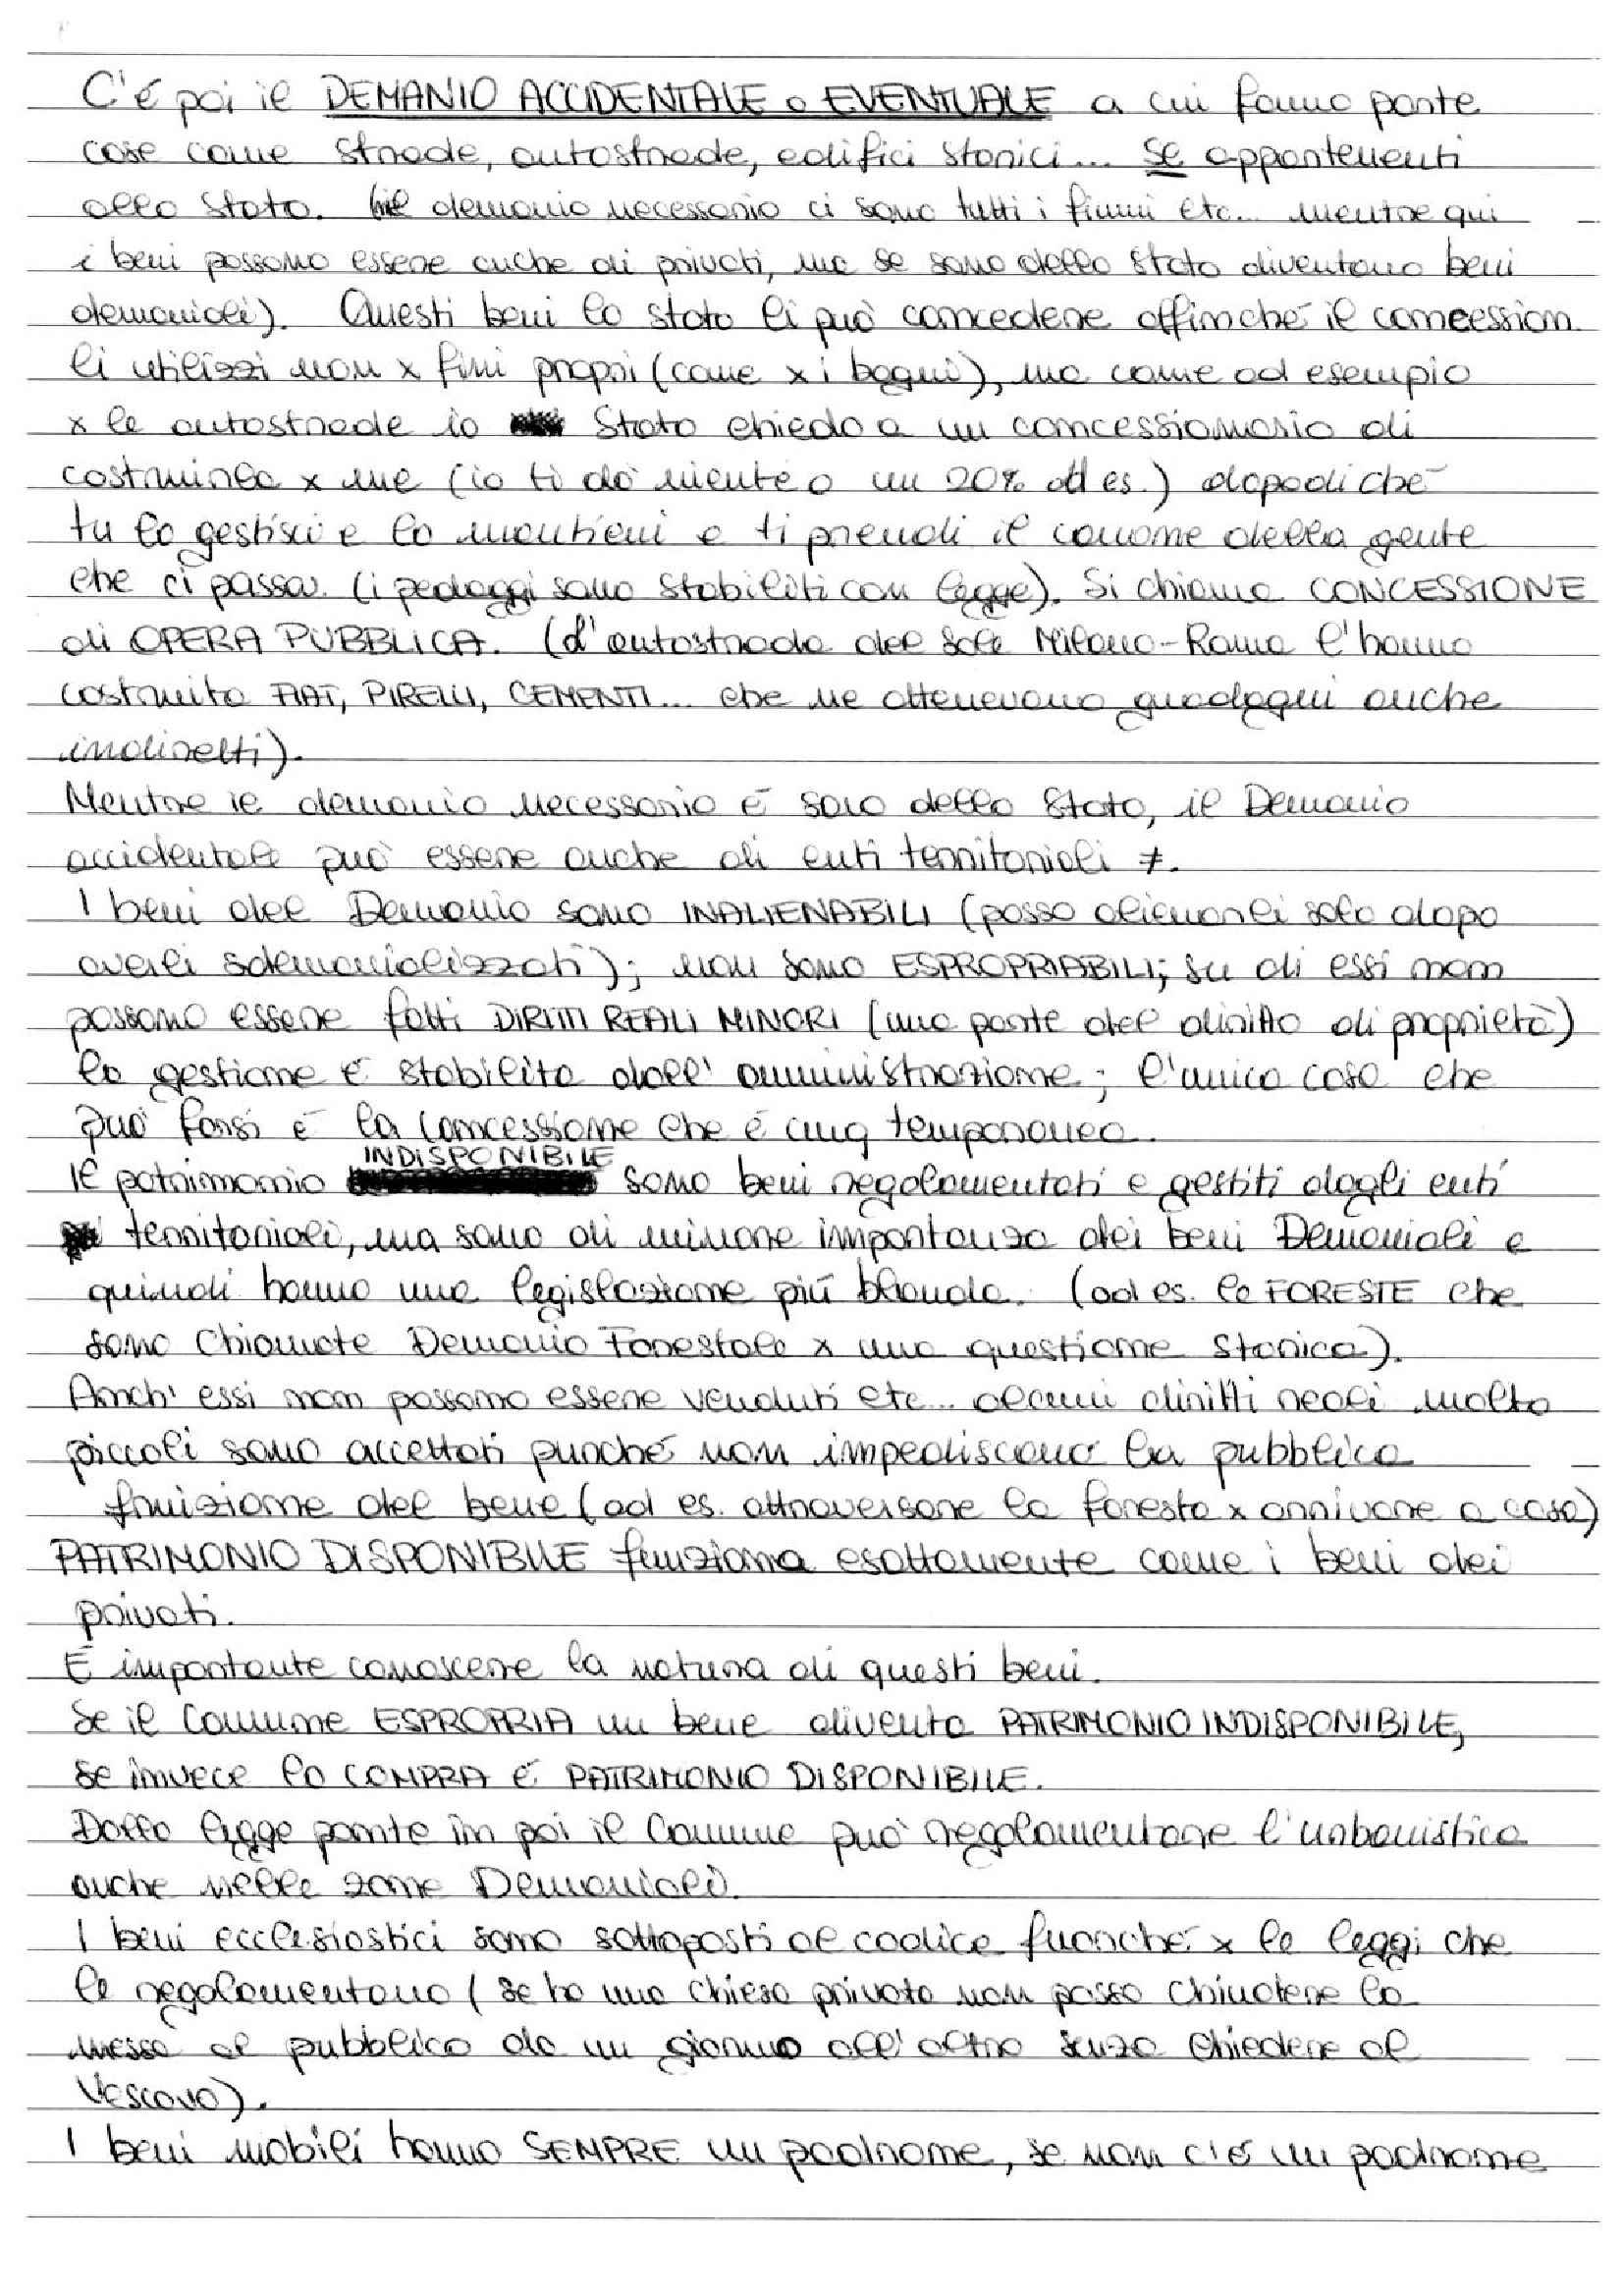 C'é poi il DEMANIO ACCIDENTALE o EVENTUALE a cui fanno parte
cose come strade, autostrade, edifici storici... se appartenenti
allo Stato. (nel demanio necessario ci sono tutti i fiumi etc... mentre qui
i beni possono essere anche di privati, ma se sono dello Stato diventano beni
demaniali). Questi beni lo stato li può concedere affinché il concession
li utilizzi non x fini propri (come x i bagni), ma come ad esempio
x le autostrade io Stato chiedo a un concessionario di
costruirla x me (io ti dò niente o un 20% ad es.) dopodiché
tu la gestisci e la mantieni e ti prendi il canone della gente
che ci passa. (i pedaggi sono stabiliti con legge). Si chiama CONCESSIONE
di OPERA PUBBLICA. (l'autostrada del sole Milano-Roma l'hanno
costruita FIAT, PIRELLI, CEMENTI... che ne ottenevano guadagni anche
indiretti).
Mentre il demanio necessario é solo dello Stato, il Demanio
accidentale può essere anche di enti territoriali ≠.
I beni del Demanio sono INALIENABILI (posso alienarli solo dopo
averli sdemanializzati); non sono ESPROPRIABILI; su di essi non
possono essere fatti DIRITTI REALI MINORI (una parte del diritto di proprietà)
la gestione é stabilita dall'amministrazione; l'unica cosa che
può farsi é la concessione che é cmq temporanea.
Il patrimonio INDISPONIBILE sono beni regolamentati e gestiti dagli enti
territoriali, ma sono di minore importanza dei beni Demaniali e
quindi hanno una legislazione più blanda. (ad es. le FORESTE che
sono chiamate Demanio Forestale x una questione storica).
Anch'essi non possono essere venduti etc... alcuni diritti reali molto
piccoli sono accettati purché non impediscano la pubblica
fruizione del bene (ad es. attraversare la foresta x arrivare a casa)
PATRIMONIO DISPONIBILE funziona esattamente come i beni dei
privati.
É importante conoscere la natura di questi beni.
Se il Comune ESPROPRIA un bene diventa PATRIMONIO INDISPONIBILE,
se invece lo COMPRA É PATRIMONIO DISPONIBILE.
Dalla legge ponte in poi il Comune può regolamentare l'urbanistica
anche nelle zone Demaniali.
I beni ecclesiastici sono sottoposti al codice fuorché x le leggi che
le regolamentano (se ho una chiesa privata non posso chiudere la
messa al pubblico da un giorno all'altro senza chiedere al
Vescovo).
I beni mobili hanno SEMPRE un padrone, se non c'é un padrone